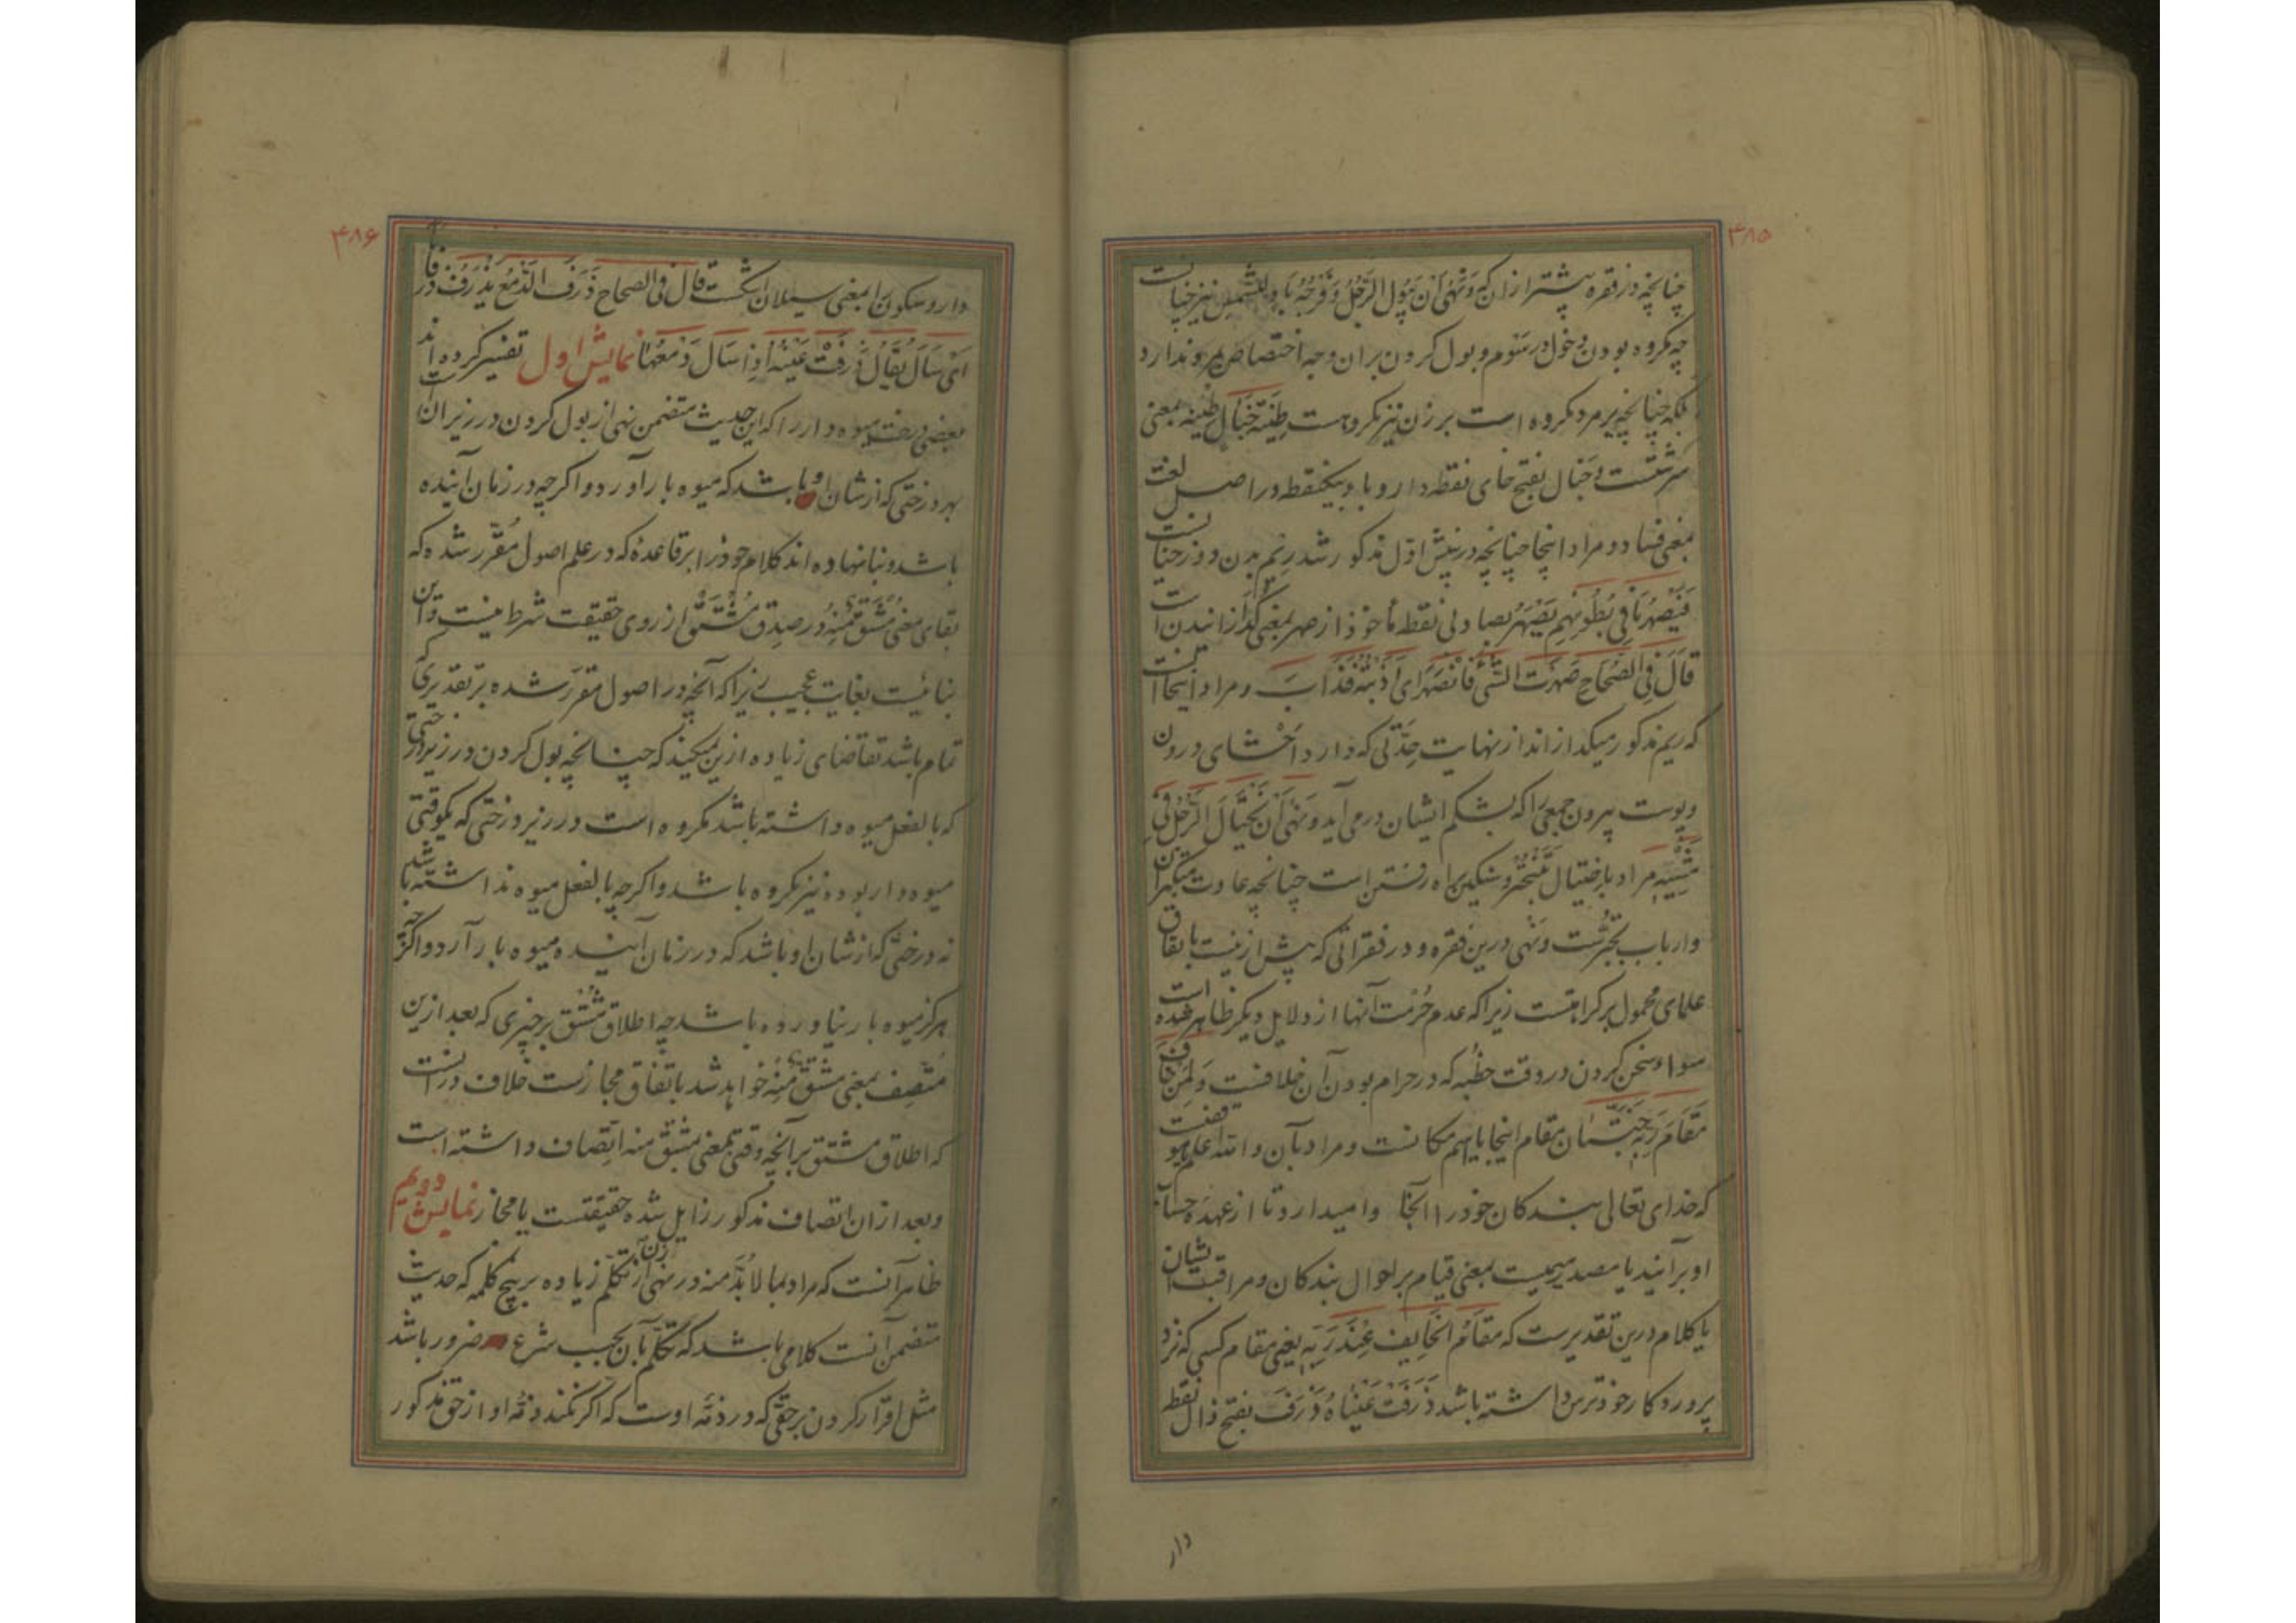 ۴۸۵
چنانچه در فقره پیشتر ازان که و نهی ان یبول الرجل و فرجه باد للشمس نیز چنانست
چه مکروه بودن دخول در سوم و بول کردن بران وجه اختصاص بمرد ندارد
بلکه چنانچه بر مرد مکروه است بر زن نیز مکروهست طِینَة خَبَال طینه بمعنی
سرشتست و خبال بفتح خای نقطه دار و باء یکنقطه در اصل لغت
بمعنی فساد و مراد اینجا چنانچه در نمایش اول مذکور شد ریم بدن دوزخیانست
فَیَصْهَرُ مَا فِی بُطُونِهِم یَصْهَرُ بصاد بی نقطه مأخوذ از صهر بمعنی گدازانیدنست
قَالَ فِی الصِّحَاحِ صَهَرْتُ الشَّیْءَ فَانْصَهَرَ ای اَذَبْتُهُ فَذَابَ و مراد اینجا آنست
که ریم مذکور میکدازاند از نهایت حِدّتی که دارد اَحْشای درون
و پوست بیرون جمعی را که بشکم ایشان در می آید و نَهَی أَنْ یَخْتَالَ الرَّجُلُ فِی
مَشْیِهِ مراد باختیال تَبَخْتُر و سنگین راه رفتن است چنانچه عادت متکبران
و ارباب تجبّرست و نهی درین فقره و در فقراتی که پیش ازینست باتفاق
علمای محمول بر کراهتست زیرا که عدم حُرمت آنها از دلایل دیگر ظاهر شده است
سواء سخن کردن در وقت خطبه که در حرام بودن آن خلافست وَ لِمَنْ خَافَ
مَقَامَ رَبِّهِ جَنَّتَانِ مقام اینجا یا اسم مکانست و مراد بآن و الله اعلم موقفیست
که خدای تعالی بندکان خود را آنجا وامیدارد تا از عهدهٔ حساب
او برآیند یا مصدر میمیست بمعنی قیام بر احوال بندکان و مراقبت ایشان
یا کلام درین تقدیرست که مَقَامُ الخَایِف عِنْدَ رَبِّهِ یعنی مقام کسی که نزد
پروردکار خود ترس داشته باشد ذَرَفَتْ عَیْنَاهُ ذَرَفَ بفتح ذال نقطه
دار
۴۸۶
دار و سکون را بمعنی سیلان اشکست قَالَ فِی الصحاح ذَرَفَ الدَّمْعُ یَذْرِفُ ذَرْفًا
اَیْ سَالَ یُقَالُ ذَرَفَتْ عَیْنُهُ اِذَا سَالَ دَمْعُهَا نمایش اول تفسیر کرده اند
بعضی درخت میوه دار را که این حدیث متضمن نهی از بول کردن در زیر آنست
بهر درختی که از شان او باشد که میوه بار آورد و اکرچه در زمان آینده
باشد و بنا نهاده اند کلام خود را بر قاعدهٔ که در علم اصول مُقرّر شده که
بقای معنی مُشْتَقّ مِنْه در صدق مُشْتَقّ از روی حقیقت شرط نیست و این
بنائیست بغایت عجیب زیرا که آنچه در اصول مقرر شده بر تقدیری که
تمام باشد تقاضای زیاده ازین نمیکند که چنانچه بول کردن در زیر درختی
که بالفعل میوه داشته باشد مکروه است در زیر درختی که یکوقتی
میوه دار بوده نیز مکروه باشد و اکرچه بالفعل میوه نداشته باشد
نه درختی که از شان او باشد که در زمان آینده میوه بار آرد و اکرچه
هرکز میوه بار نیاورده باشد چه اطلاق مُشْتَق بر چیزی که بعد ازین
مُتَّصِف بمعنی مشتق مِنْه خواهد شد باتفاق مجازست خلاف درآنست
که اطلاق مشتق بر آنچه وقتی بمعنی مشتق منه اتصاف داشته است
و بعد ازان اتصاف مذکور زایل شده حقیقتست یا مجاز نمایش دویم
ظاهر آنست که مراد بما لابُدّ منه در نهی زن از تکلم زیاده بر پنج کلمه که حدیث
متضمن آنست کلامی باشد که تکلم بآن بحسب شرع ضرور باشد
مثل اقرار کردن بر حقّی که در ذمّه اوست که اکر نکند ذمّه او از حق مذکور